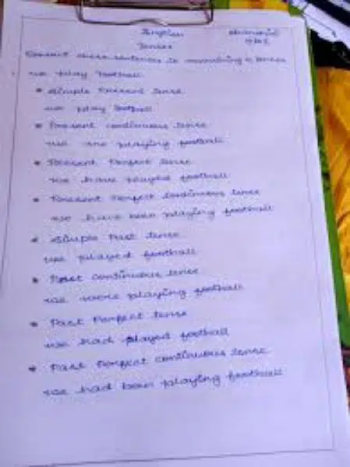 English
Tenses
Convert these sentences in remaining tenses
we play football
* Simple Present tense
we play football
* Present continuous tense
we are playing football
* Present Perfect tense
we have played football
* Present Perfect continuous tense
we have been playing football
* Simple Past tense
we played football
* Past continuous tense
we were playing football
* Past Perfect tense
we had played football
* Past Perfect continuous tense
we had been playing football